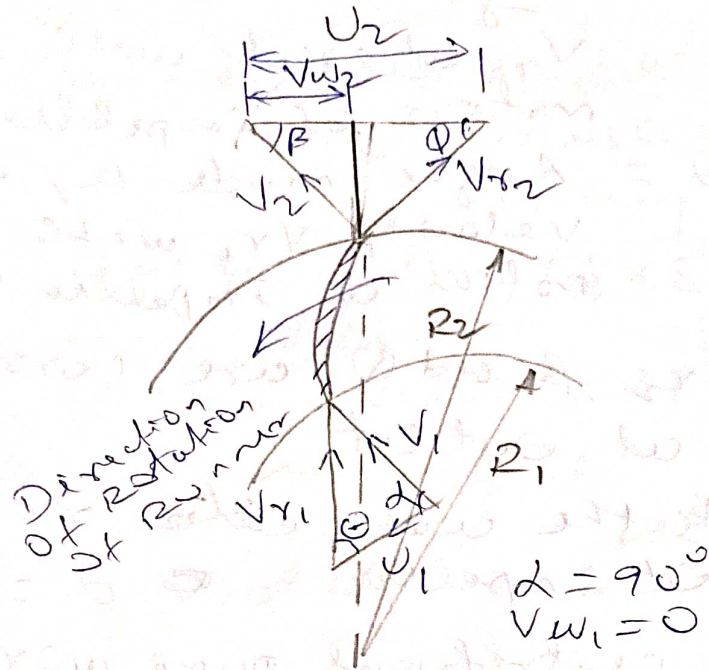 U2
Vw2
β
Φ
V2
Vr2
R2
Direction
of Rotation
of Runner
V1
R1
Vr1
Θ
α
U1
α = 90°
Vw1 = 0